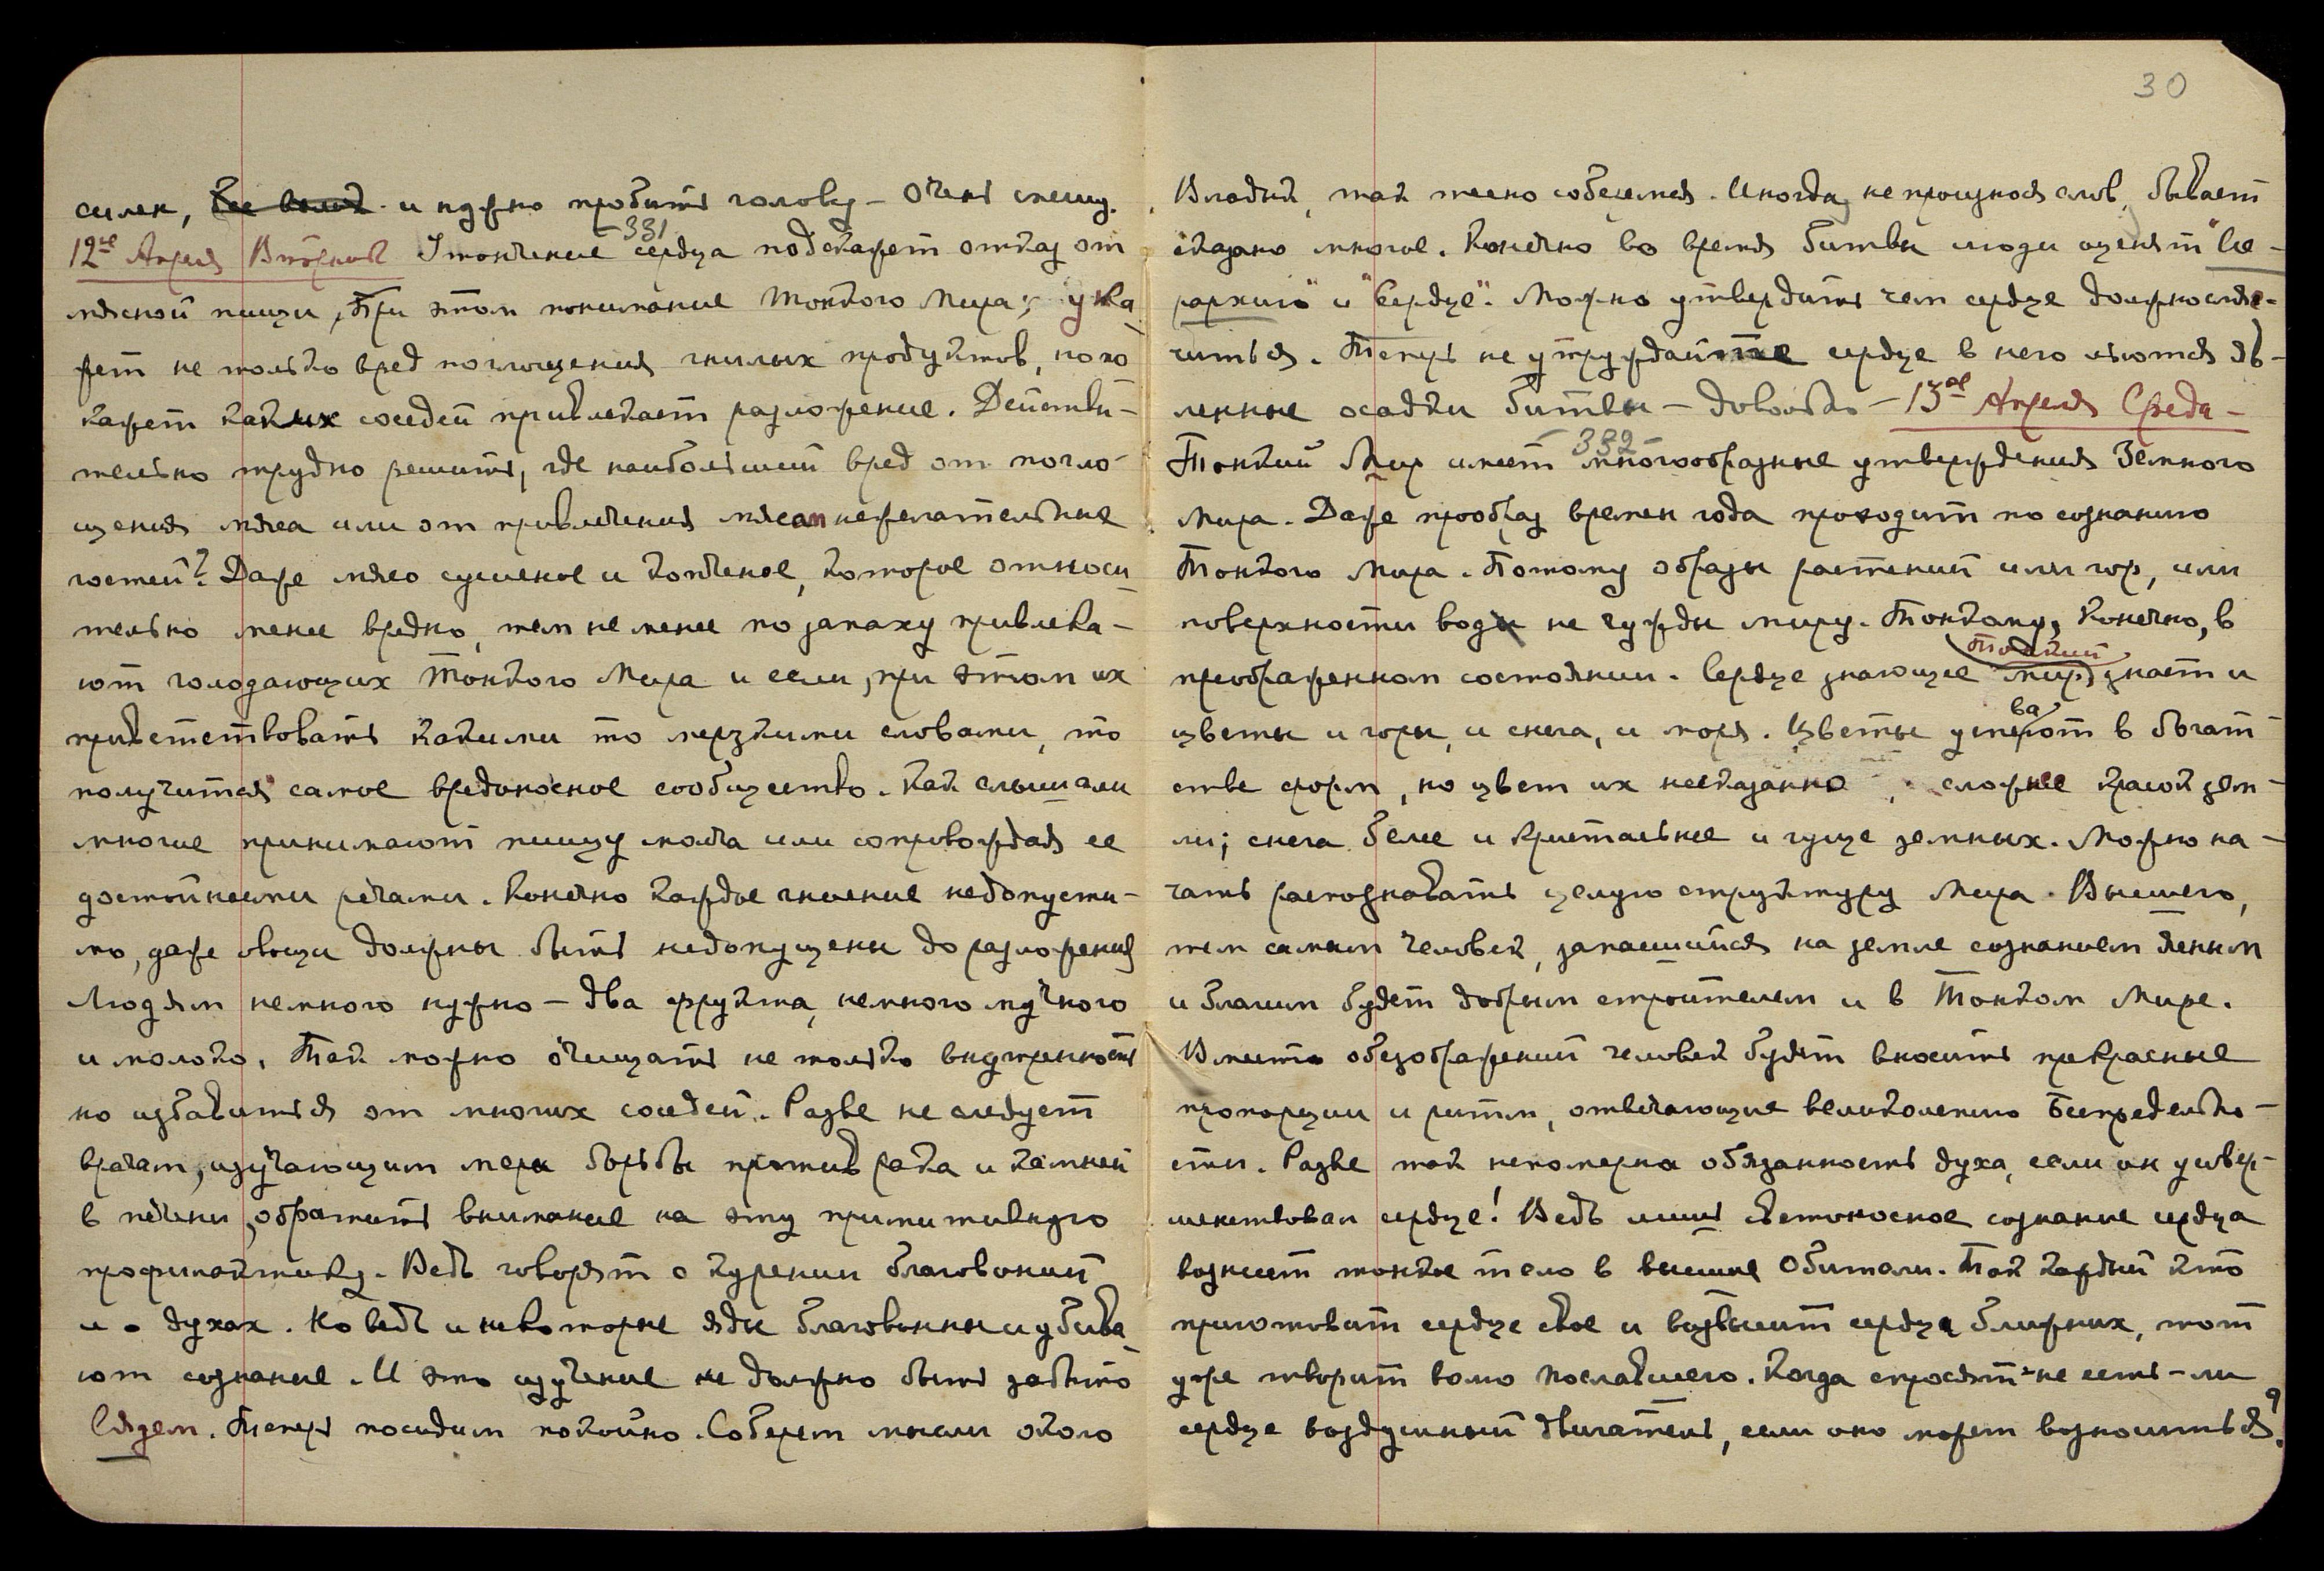 30
силен, и нужно пробить голову – Очень спешу.
331
12ое Апреля Вторник Утончение сердца подскажет отказ от
мясной пищи, При этом понимание Тонкого Мира; ука-
жет не только вред поглощения гнилых продуктов, но по
кажет каких соседей привлекает разложение. Действи-
тельно трудно решить, где наибольший вред от погло-
щения мяса или от привлечения мясом нежелательные
гостей? Даже мясо сушеное и копченое, которое относи-
тельно менее вредно, тем не менее по запаху привлека-
ют голодающих Тонкого Мира и если, при этом их
приветствовать какими то мерзкими словами, то
получится самое вредоносное сообщество. Как слышали
многие принимают пищу молча или сопровождая ее
достойнейми речами. Конечно каждое гниение недопусти-
мо, даже овощи должны быть недопущены до разложения
Людям немного нужно – два фрукта, немного мучного
и молоко. Так можно очищать не только внутренность
но избавиться от многих соседей. Разве не следует
врачам, изучающим меры борьбы против рака и камней
в печени, обратить внимание на эту примитивную
профилактику. Ведь говорят о курении благовоний
и о духах. Но ведь и некоторые яды благовонны и убива-
ют сознание. И это изучение не должно быть забыто
Сядем. Теперь посидим покойно. Соберем мысли около
Владык, так тесно соберемся. Иногда, не произнося слов, бывает
сказано многое. Конечно во время битвы люди оценят "Ие-
рархию" и "Сердце". Можно утвердить чем сердце должно смяг-
читься. Теперь не утруждайте сердце в него льются яв-
ленные осадки битвы – довольно – 13ое Апреля Среда –
332
Тонкий Мир имеет многообразные утверждения Земного
Мира. Даже прообраз времен года проходит по сознанию
Тонкого Мира. Потому образы растений или гор, или
поверхности воды не чужды миру. Тонкому, Конечно, в
Тонкий
преображенном состоянии. Сердце знающее мир знает и
ва
цветы и горы, и снега, и моря. Цветы успеют в богат-
стве форм, но цвет их несказанно, сложнее красок зем-
ли; снега белее и кристальнее и гуще земных. Можно на-
чать распознавать целую структуру Мира. Высшего,
тем самым человек, запасшийся на земле сознанием ясным
и благим будет добрым строителем и в Тонком Мире.
Вместо обезображений человек будет вносить прекрасные
пропорции и ритм, отвечающие великолепию Беспредельно-
сти. Разве так непомерна обязанность духа, если он усовер-
шенствовал сердце! Ведь лишь светоносное сознание сердца
вознесет тонкое тело в высшие Обители. Так каждый кто
приготовит сердце свое и возвысит сердца ближних, тот
уже творит волю Пославшего. Когда спросят – не есть-ли
сердце воздушный двигатель, если оно может возноситься?